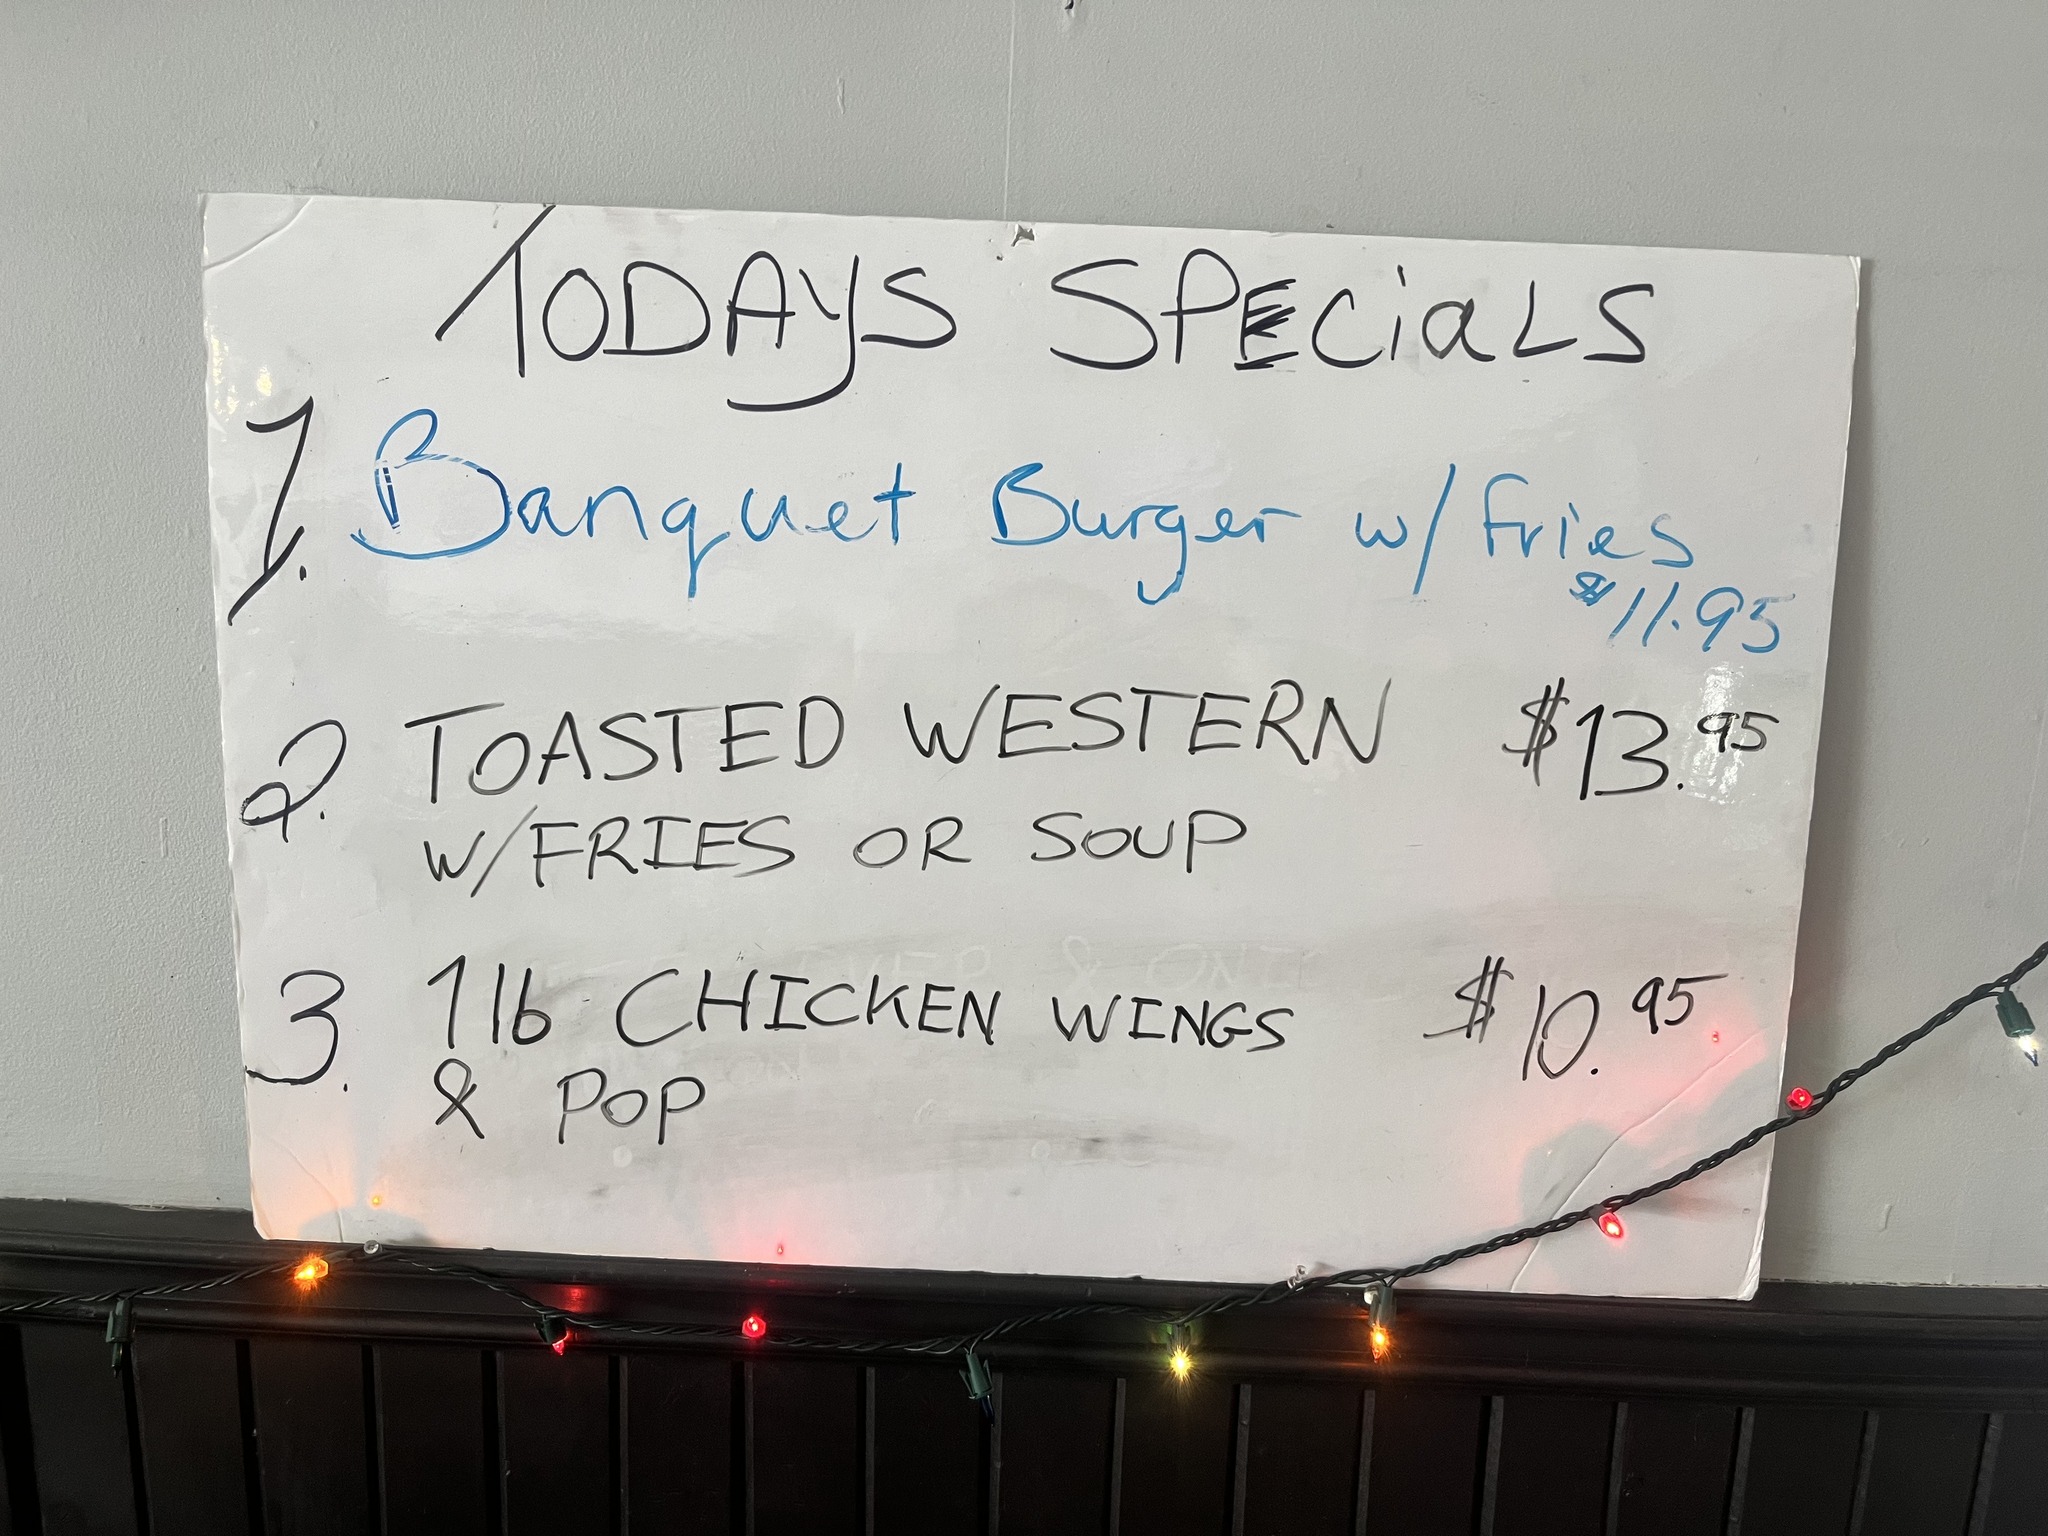 TODAYS SPECiaLS
1. Banquet Burger w/ fries
$11.95
2. TOASTED WESTERN $13.95
W/FRIES OR SOUP
3. 1 lb CHICKEN WINGS $10.95
& POP